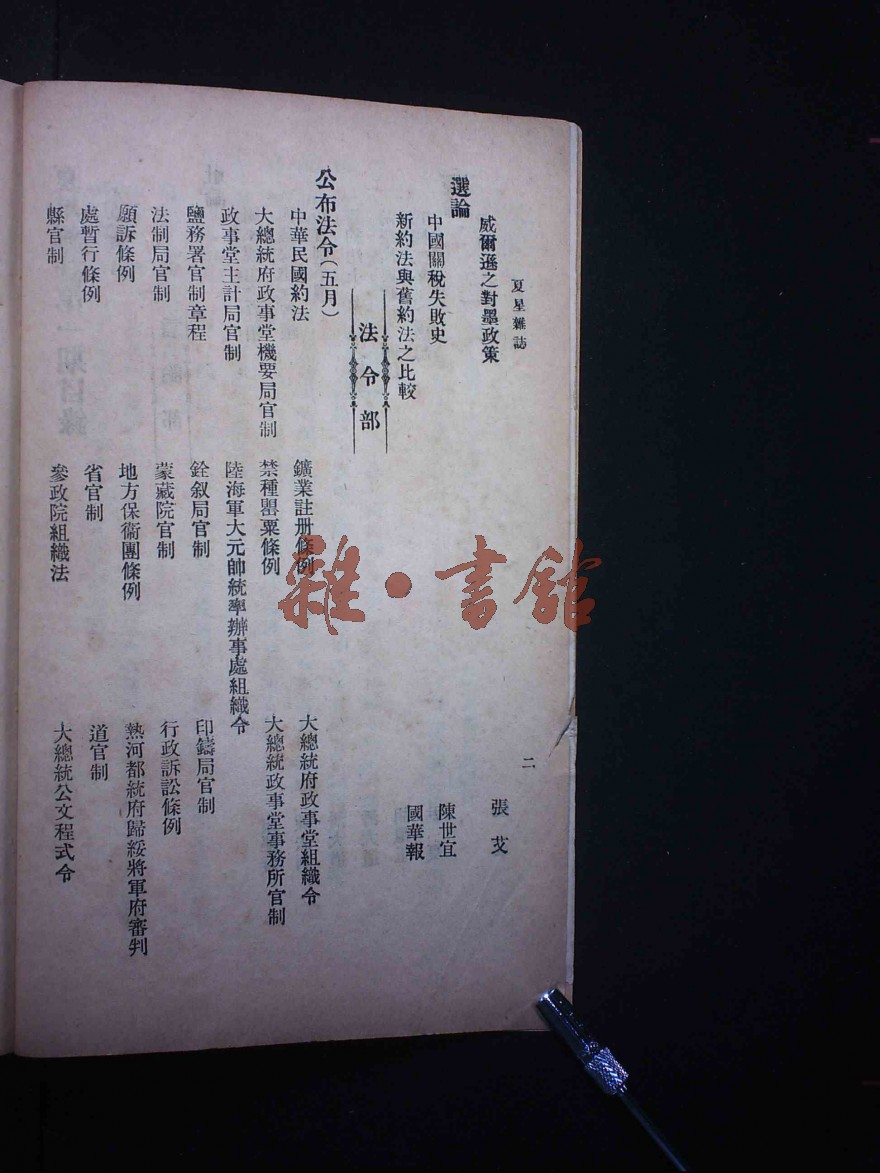 夏星雜誌
二
威爾遜之對墨政策
張艾
選論
中國關稅失敗史
陳世宜
新約法與舊約法之比較
國華報
法令部
公布法令(五月)
中華民國約法
鑛業註册條例
大總統府政事堂組織令
大總統府政事堂機要局官制
禁種罌粟條例
大總統政事堂事務所官制
政事堂主計局官制
陸海軍大元帥統率辦事處組織令
鹽務署官制章程
銓叙局官制
印鑄局官制
法制局官制
蒙藏院官制
行政訴訟條例
願訴條例
地方保衞團條例
熱河都統府歸綏將軍府審判
處暫行條例
省官制
道官制
縣官制
參政院組織法
大總統公文程式令
雜·書館